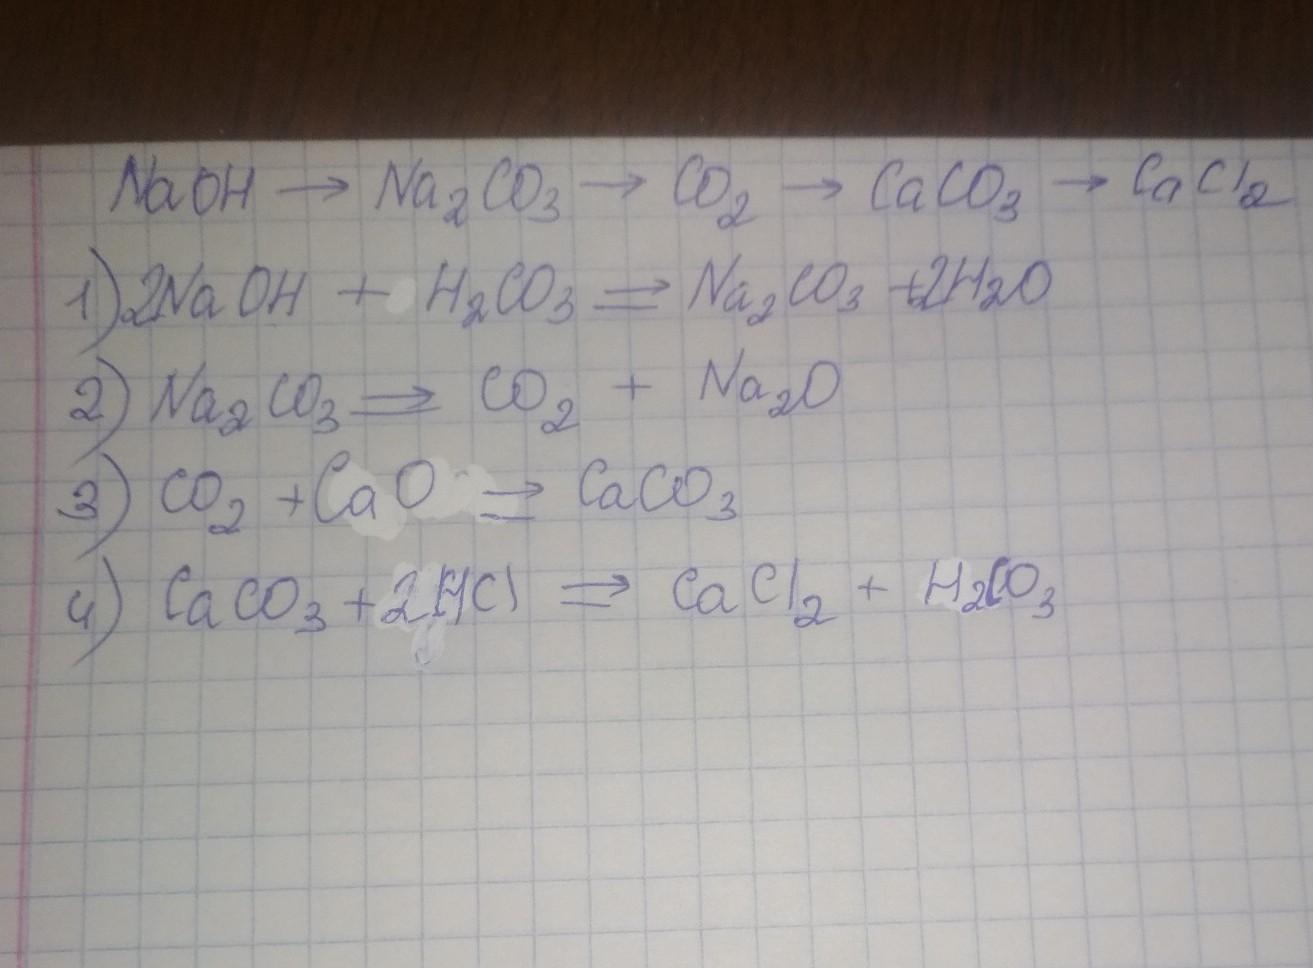 NaOH → Na₂CO₃ → CO₂ → CaCO₃ → CaCl₂
1) 2NaOH + H₂CO₃ ⇒ Na₂CO₃ + 2H₂O
2) Na₂CO₃ ⇒ CO₂ + Na₂O
3) CO₂ + CaO ⇒ CaCO₃
4) CaCO₃ + 2HCl ⇒ CaCl₂ + H₂CO₃